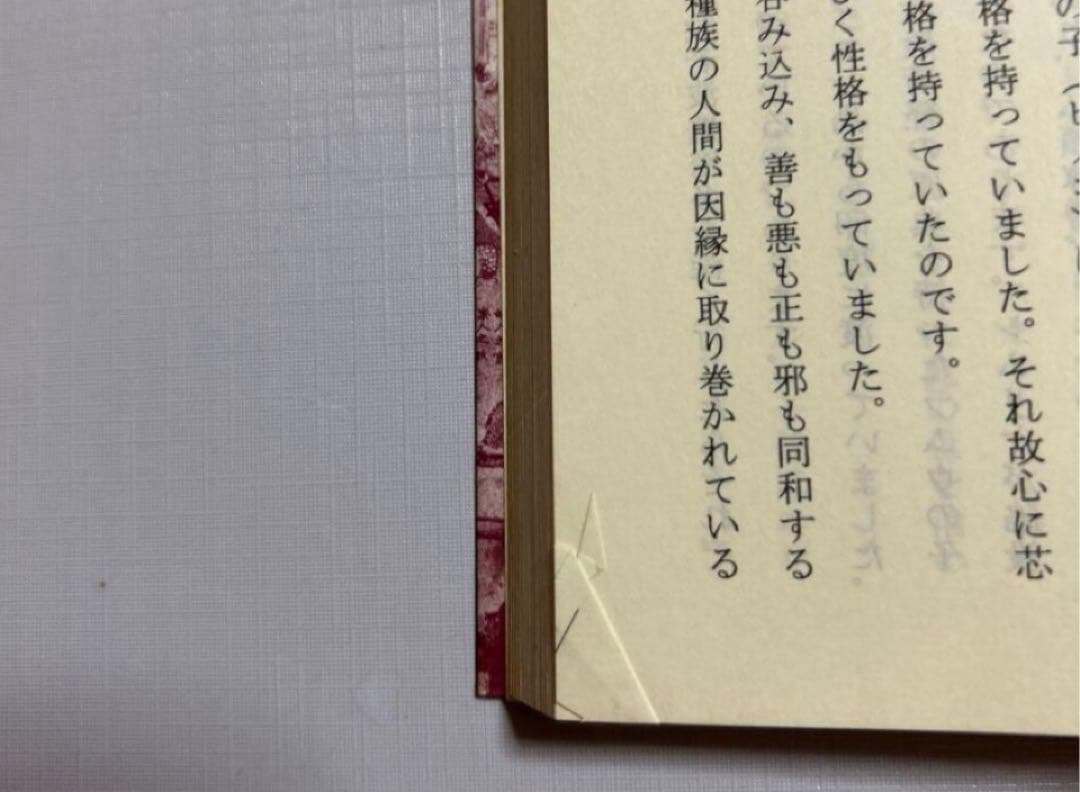 の子
格を持っていました。それ故心に芯
格を持っていたのです。
く性格をもっていました。
呑み込み、善も悪も正も邪も同和する
種族の人間が因縁に取り巻かれている